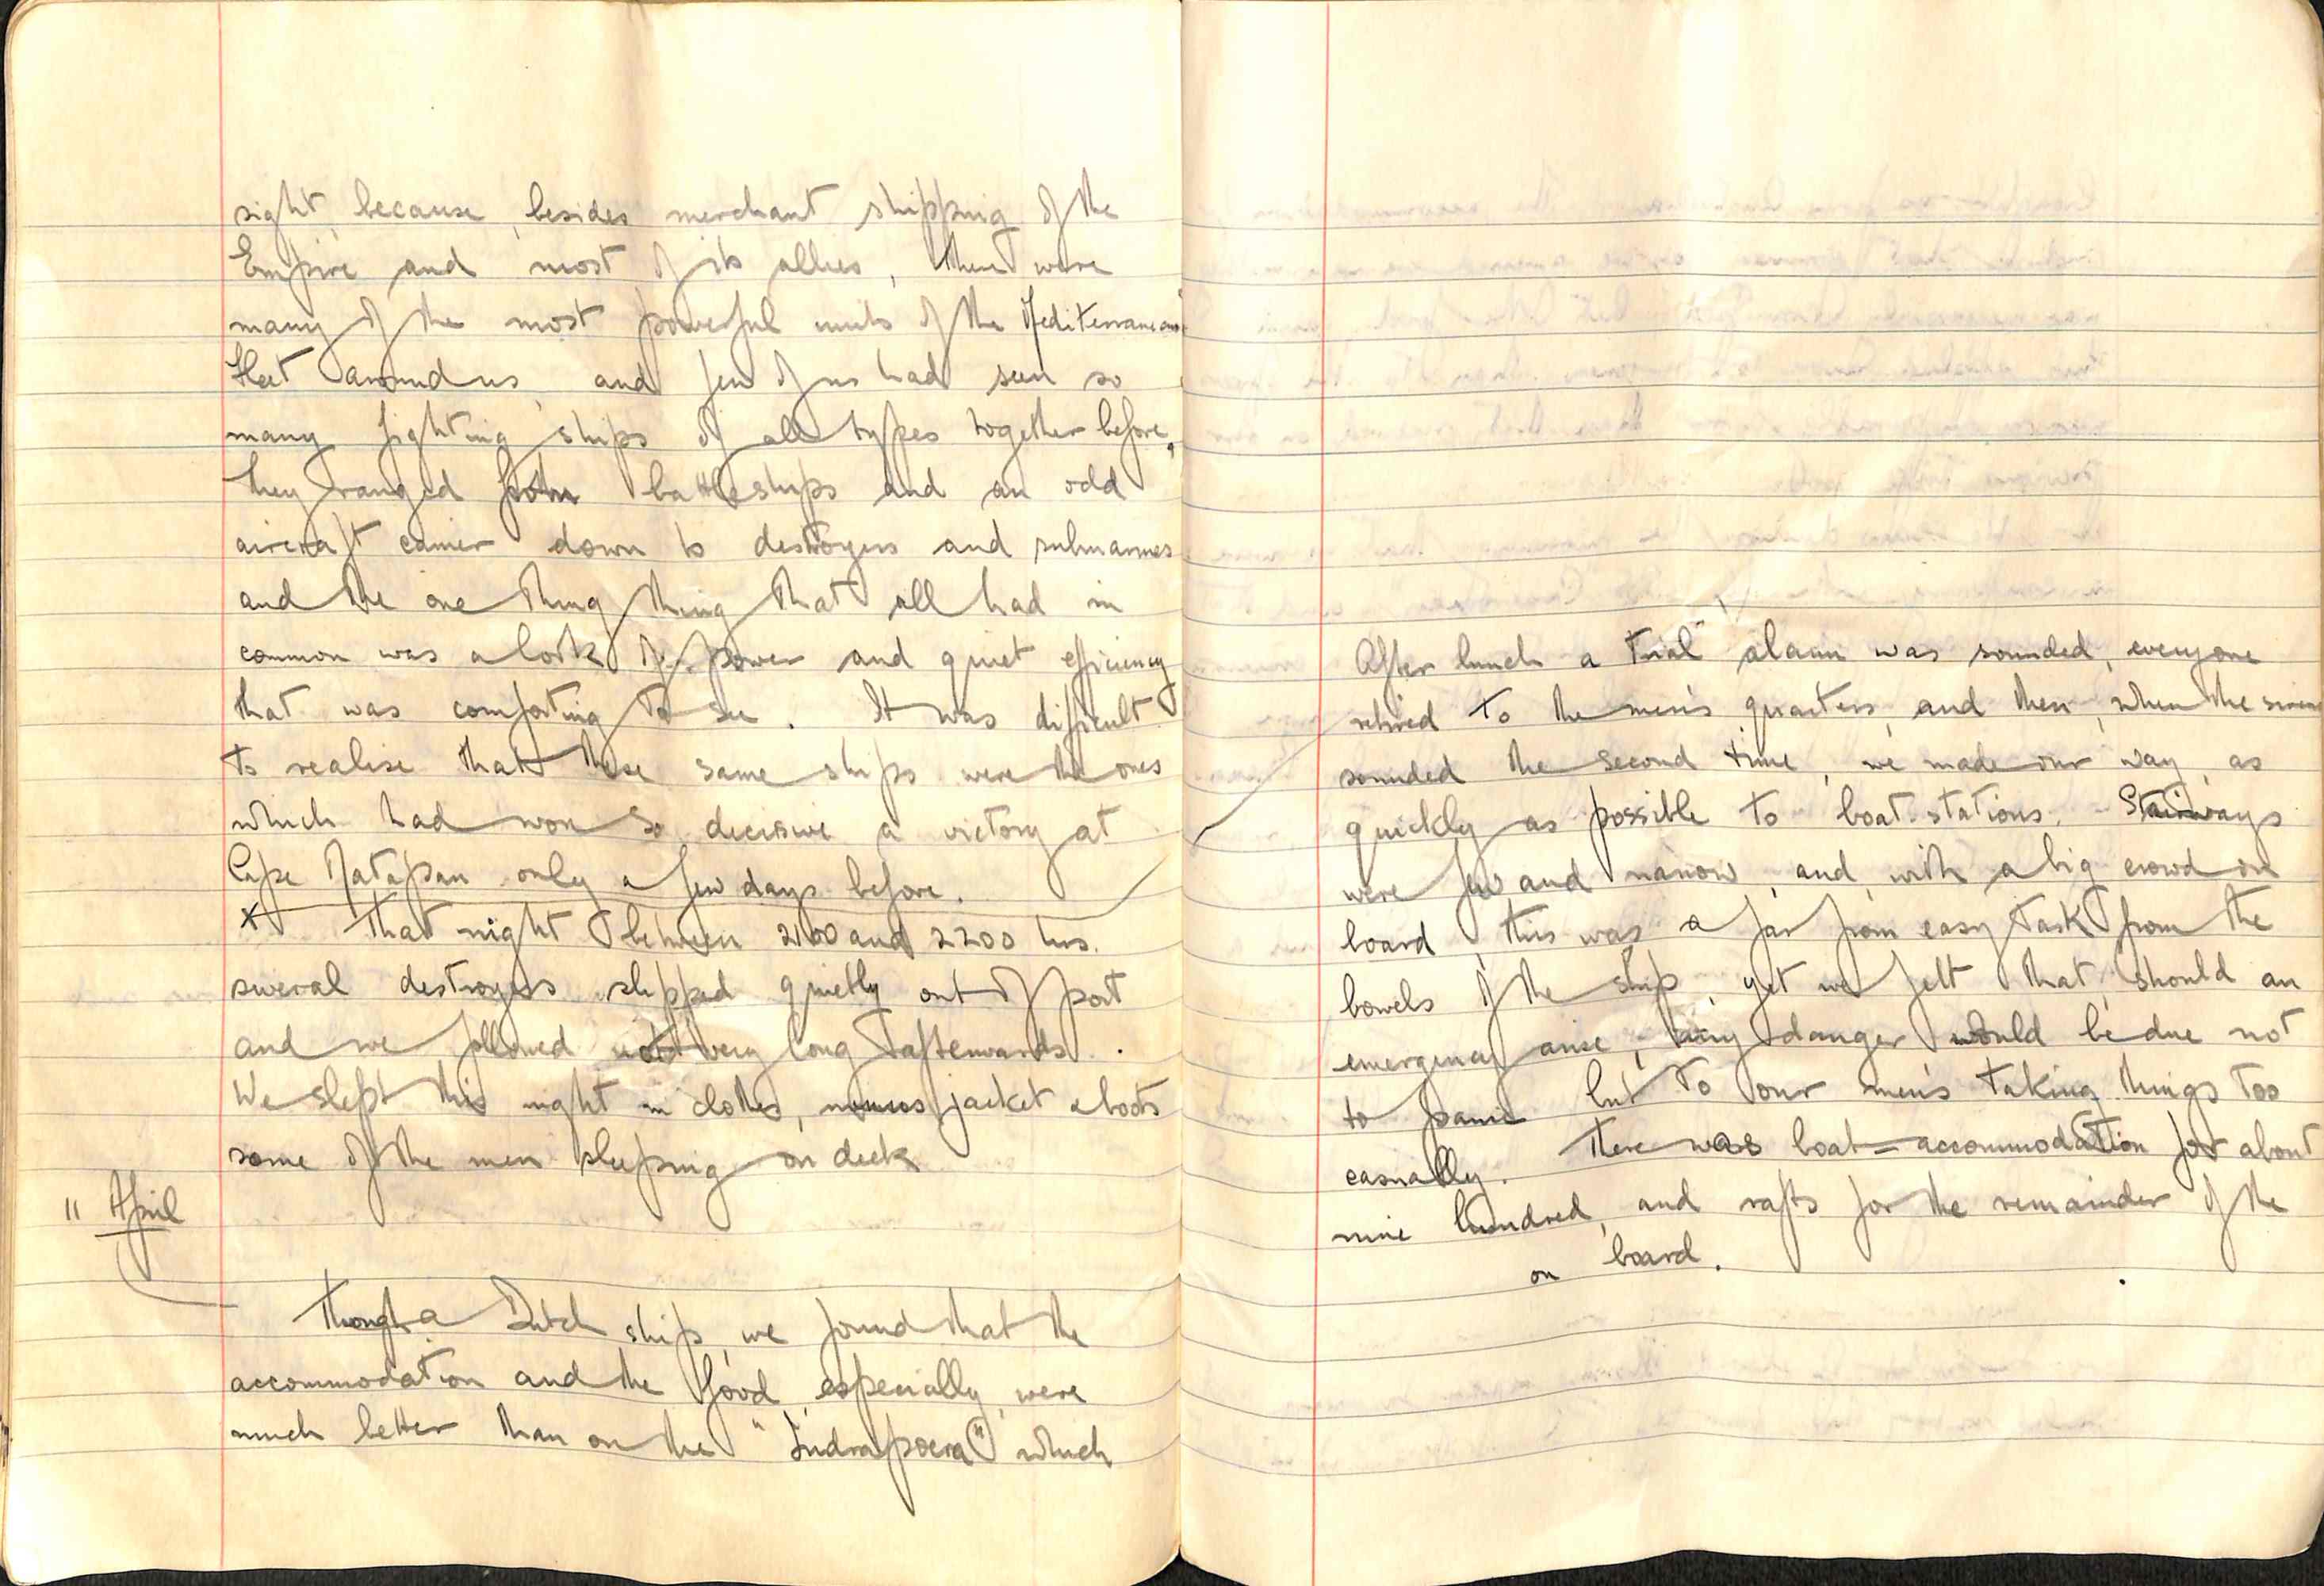 sight, because, besides merchant shipping of the
Empire and most of its allies, there were
many of the most powerful units of the Mediterranean
fleet around us, and few of us had seen so
many fighting ships of all types together before.
They ranged from battleships and an odd
aircraft carrier down to destroyers and submarines
and the one thing thing that all had in
common was a look of power and quiet efficiency
that was comforting to see. It was difficult
to realise that these same ships were the ones
which had won so decisive a victory at
Cape Matapan only a few days before.
x That night between 2100 and 2200 hrs.
several destroyers slipped quietly out of port
and we followed not very long afterwards.
We slept this night in clothes, minus jacket & boots
some of the men sleeping on deck
11 April
Though a Dutch ship, we found that the
accommodation and the food, especially, were
much better than on the "Indrapoera" which
After lunch a "trial" alarm was sounded, everyone
retired to the men's quarters, and then, when the siren
sounded the second time, we made our way, as
quickly as possible to boat-stations. Stairways
were few and narrow, and, with a big crowd on
board, this was a far from easy task from the
bowels of the ship, yet we felt that, should an
emergency arise, any danger would be due not
to panic but to our men's taking things too
casually. There was boat-accommodation for about
nine hundred, and rafts for the remainder of the
on board.